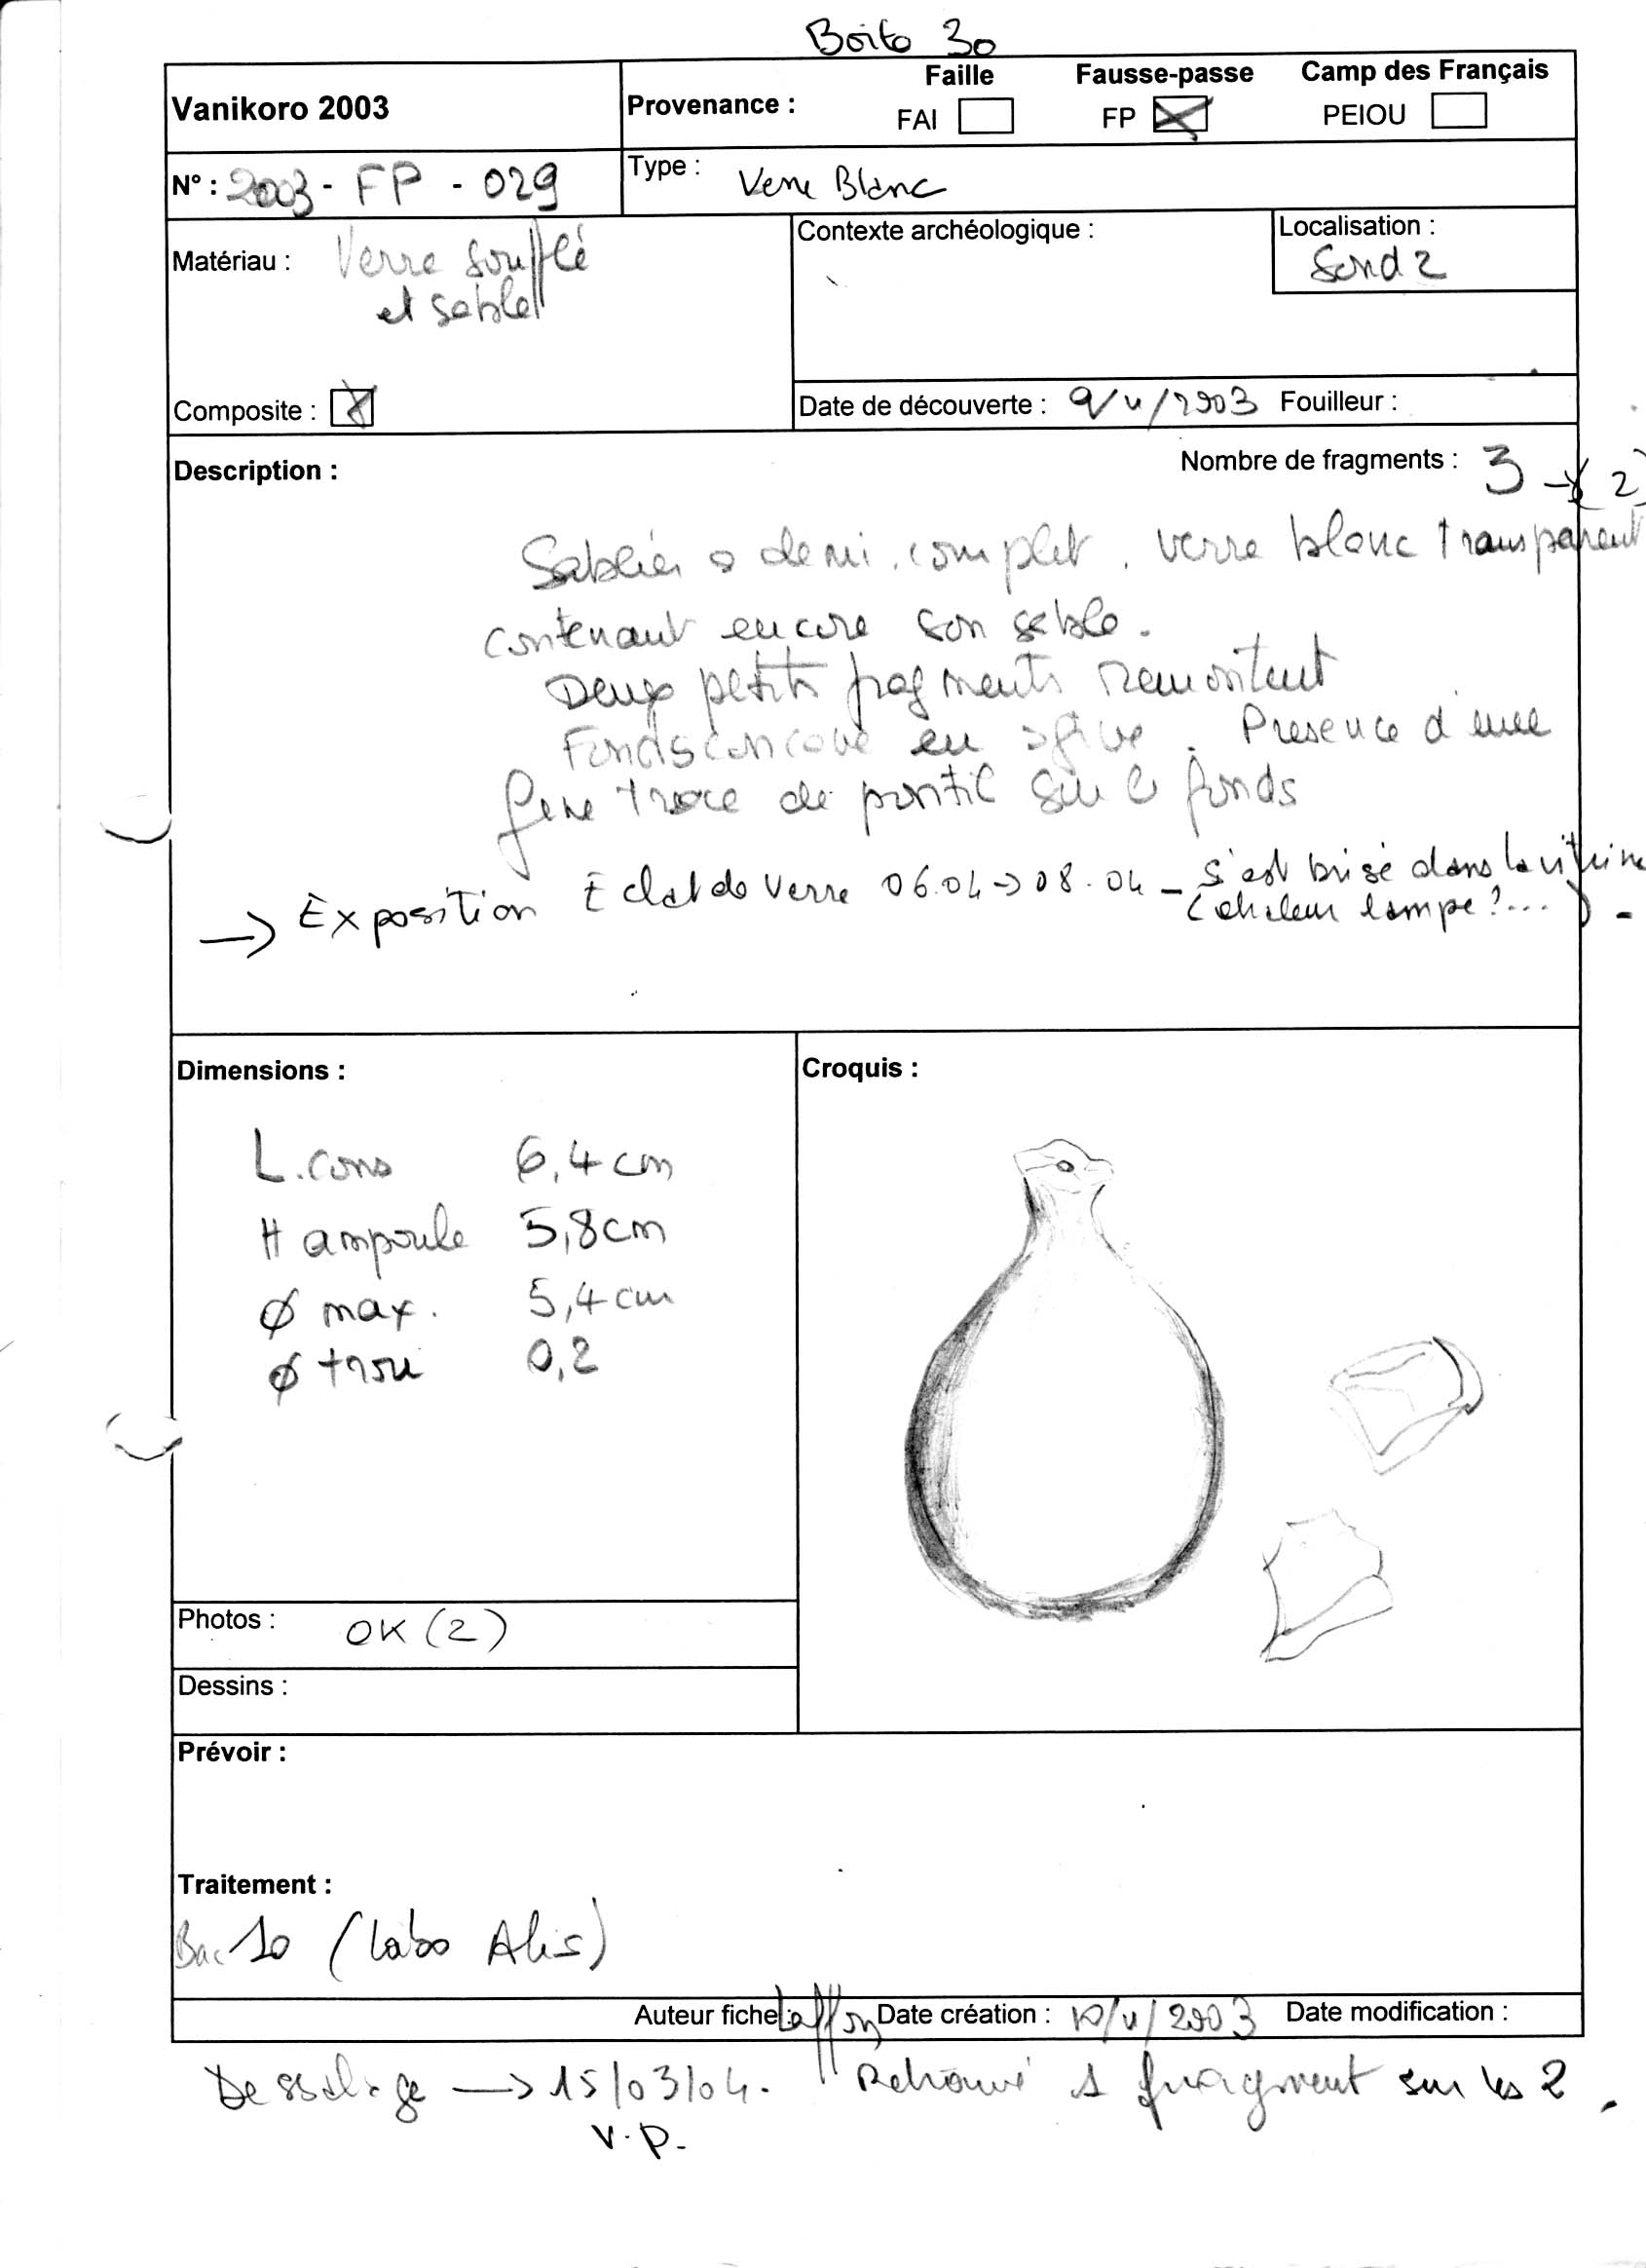 Boite 30
Vanikoro 2003
Provenance :
Faille Fausse-passe Camp des Français
FAI FP PEIOU
N° : 2003 - FP - 029
Type : Verre Blanc
Matériau : Verre soufflé
et sable
Composite :
Contexte archéologique :
Localisation :
Sond 2
Date de découverte : 9/11/2003 Fouilleur :
Description :
Nombre de fragments : 3 → (2)
Sablier a demi complet. verre blanc transparent
contenant encore son sable.
Deux petits fragments remontent
Fonds concave en ogive. Presence d'une
fine trace de pontil sur le fonds
→ Exposition Eclat de Verre 06.04 → 08.04 - S'est brisé dans la vitrine
(chaleur lampe ?...).
Dimensions :
L. cons 6,4 cm
H ampoule 5,8 cm
Ø max. 5,4 cm
Ø trou 0,2
Croquis :
Photos : OK (2)
Dessins :
Prévoir :
Traitement :
Bac 10 (labo Alis)
Auteur fiche : Date création : 10/11/2003 Date modification :
Dessalage → 15/03/04. Retrouvé 1 fragment sur les 2.
V.P.